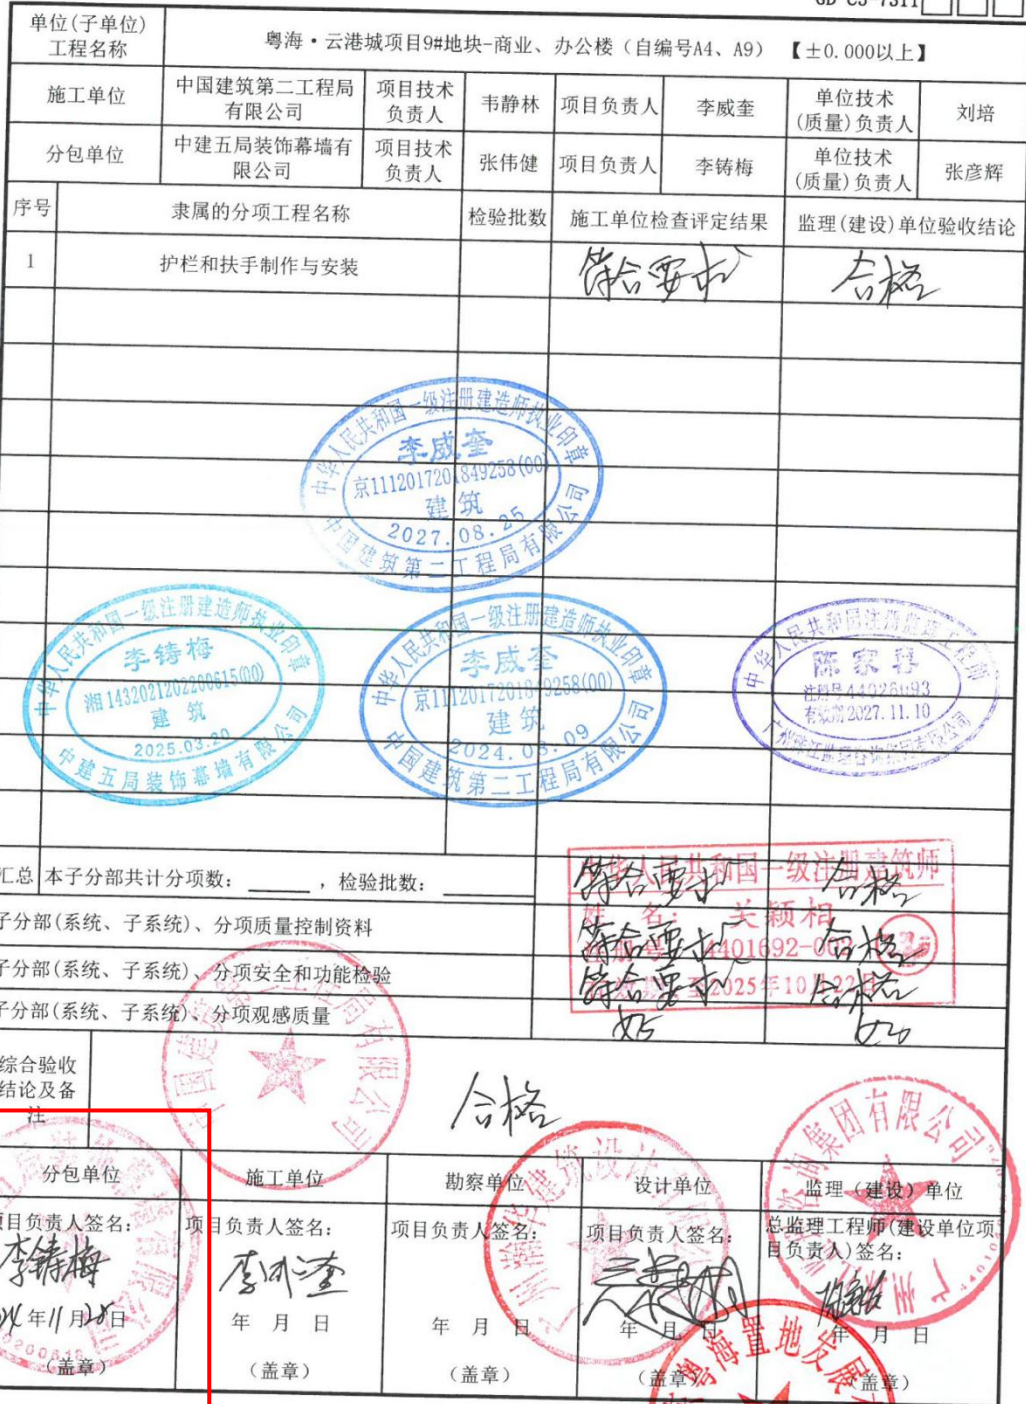 GD-C5-7311
单位(子单位)
工程名称
粤海·云港城项目9#地块-商业、办公楼（自编号A4、A9） 【±0.000以上】
施工单位
中国建筑第二工程局
有限公司
项目技术
负责人
韦静林
项目负责人
李威奎
单位技术
(质量)负责人
刘培
分包单位
中建五局装饰幕墙有
限公司
项目技术
负责人
张伟健
项目负责人
李铸梅
单位技术
(质量)负责人
张彦辉
序号
隶属的分项工程名称
检验批数
施工单位检查评定结果
监理(建设)单位验收结论
1
护栏和扶手制作与安装
符合要求
合格
中华人民共和国一级注册建造师执业印章
李威奎
京1112017201849258(00)
建筑
2027.08.25
中国建筑第二工程局有限公司
中华人民共和国一级注册建造师执业印章
李铸梅
湘1432021202200615(00)
建筑
2025.03.20
中建五局装饰幕墙有限公司
中华人民共和国一级注册建造师执业印章
李威奎
京1112017201849258(00)
建筑
2024.08.09
中国建筑第二工程局有限公司
中华人民共和国注册监理工程师
注册号44026093
有效期2027.11.10
汇总
本子分部共计分项数： ，检验批数：
符合要求
合格
中华人民共和国一级注册建筑师
姓 名： 关颖相
注册号 4401692-002
有效期 至2025年10月22日
子分部(系统、子系统)、分项质量控制资料
符合要求
合格
子分部(系统、子系统)、分项安全和功能检验
符合要求
合格
子分部(系统、子系统)、分项观感质量
好
好
综合验收
结论及备
注
合格
中国建筑第二工程局有限公司
分包单位
施工单位
勘察单位
设计单位
监理（建设）单位
项目负责人签名：
李铸梅
年11月28日
（盖章）
项目负责人签名：
李威奎
年 月 日
（盖章）
项目负责人签名：
年 月 日
（盖章）
项目负责人签名：
年 月 日
（盖章）
总监理工程师(建设单位项
目负责人)签名：
年 月 日
（盖章）
粤海置地发展